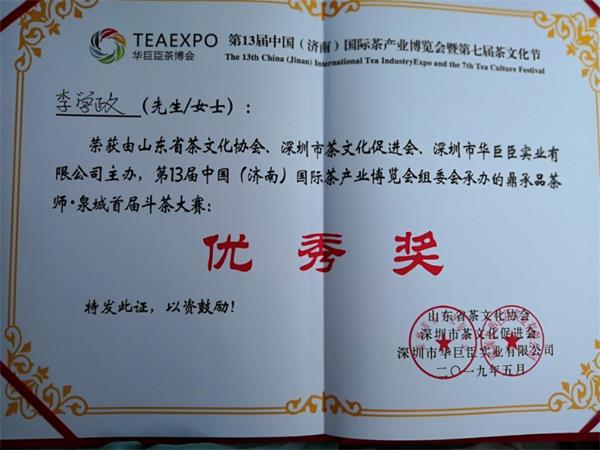 TEAEXPO
华巨臣茶博会
第13届中国(济南)国际茶产业博览会暨第七届茶文化节
The 13th China (Jinan) International Tea IndustryExpo and the 7th Tea Culture Festival
李学政 (先生/女士):
荣获由山东省茶文化协会、深圳市茶文化促进会、深圳市华巨臣实业有
限公司主办,第13届中国(济南)国际茶产业博览会组委会承办的鼎承品茶
师·泉城首届斗茶大赛:
优秀奖
特发此证,以资鼓励!
山东省茶文化协会
深圳市茶文化促进会
深圳市华巨臣实业有限公司
二〇一九年五月